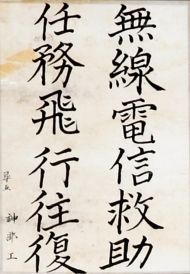 無線電信救助
任務飛行往復